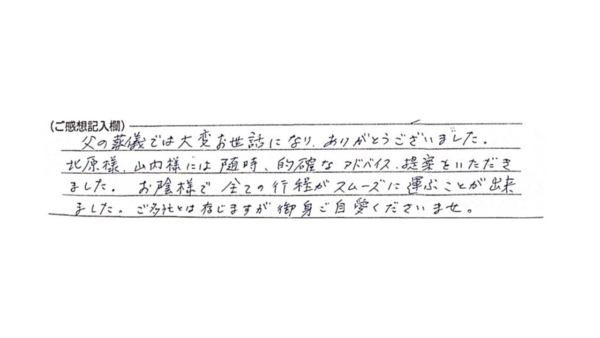 (ご感想記入欄)
父の葬儀では大変お世話になり、ありがとうございました。
北原様、山内様には随時、的確なアドバイス、提案をいただき
ました。 お陰様で 全ての行経がスムーズに運ぶことが出来
ました。ご多忙とは存じますが御身ご自愛くださいませ。